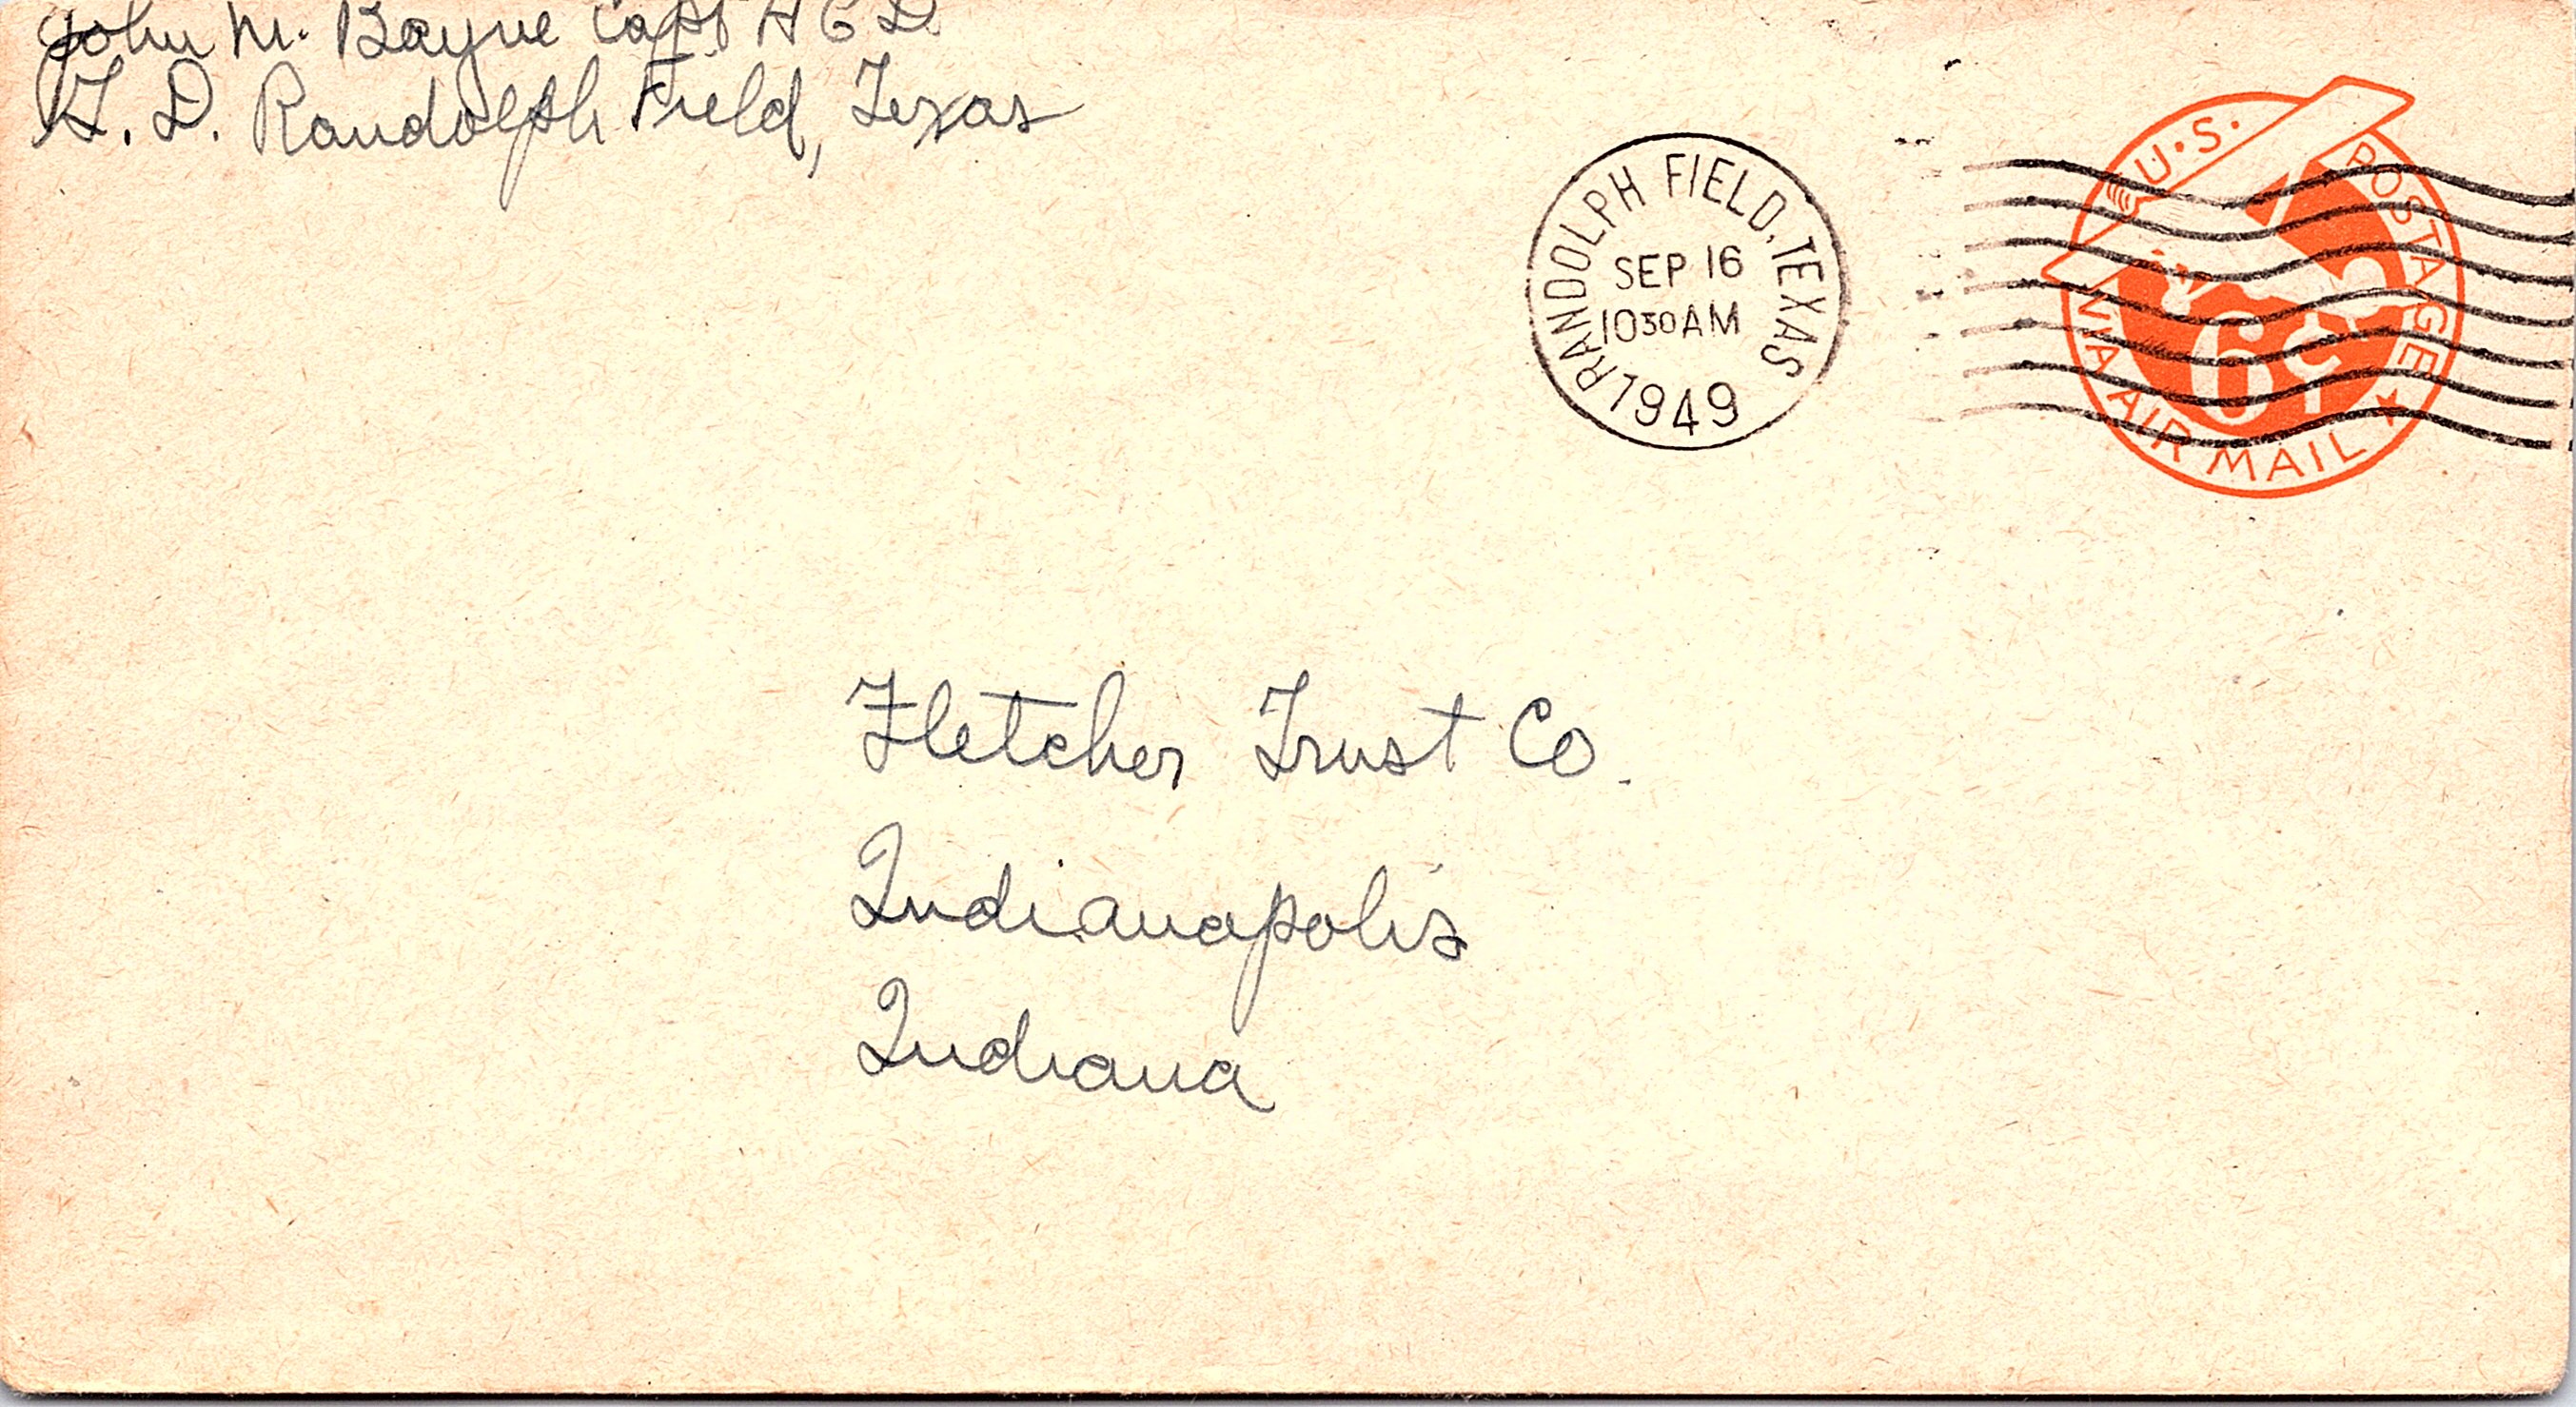 John M. Bayne Capt A C D
T. D. Randolph Field, Texas
RANDOLPH FIELD, TEXAS
SEP 16
1030AM
1949
U.S. POSTAGE
6¢
VIA AIR MAIL
Fletcher Trust Co.
Indianapolis
Indiana